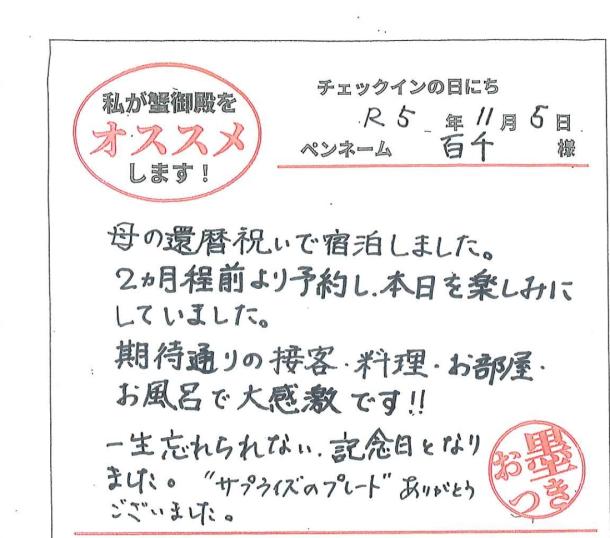 私が蟹御殿を
オススメ
します！
チェックインの日にち
R5年11月5日
ペンネーム 百千 様
母の還暦祝いで宿泊しました。
2ヵ月程前より予約し、本日を楽しみに
していました。
期待通りの接客・料理・お部屋・
お風呂で大感激です!!
一生忘れられない、記念日となり
ました。"サプライズのプレート"ありがとう
ございました。
お墨
つき